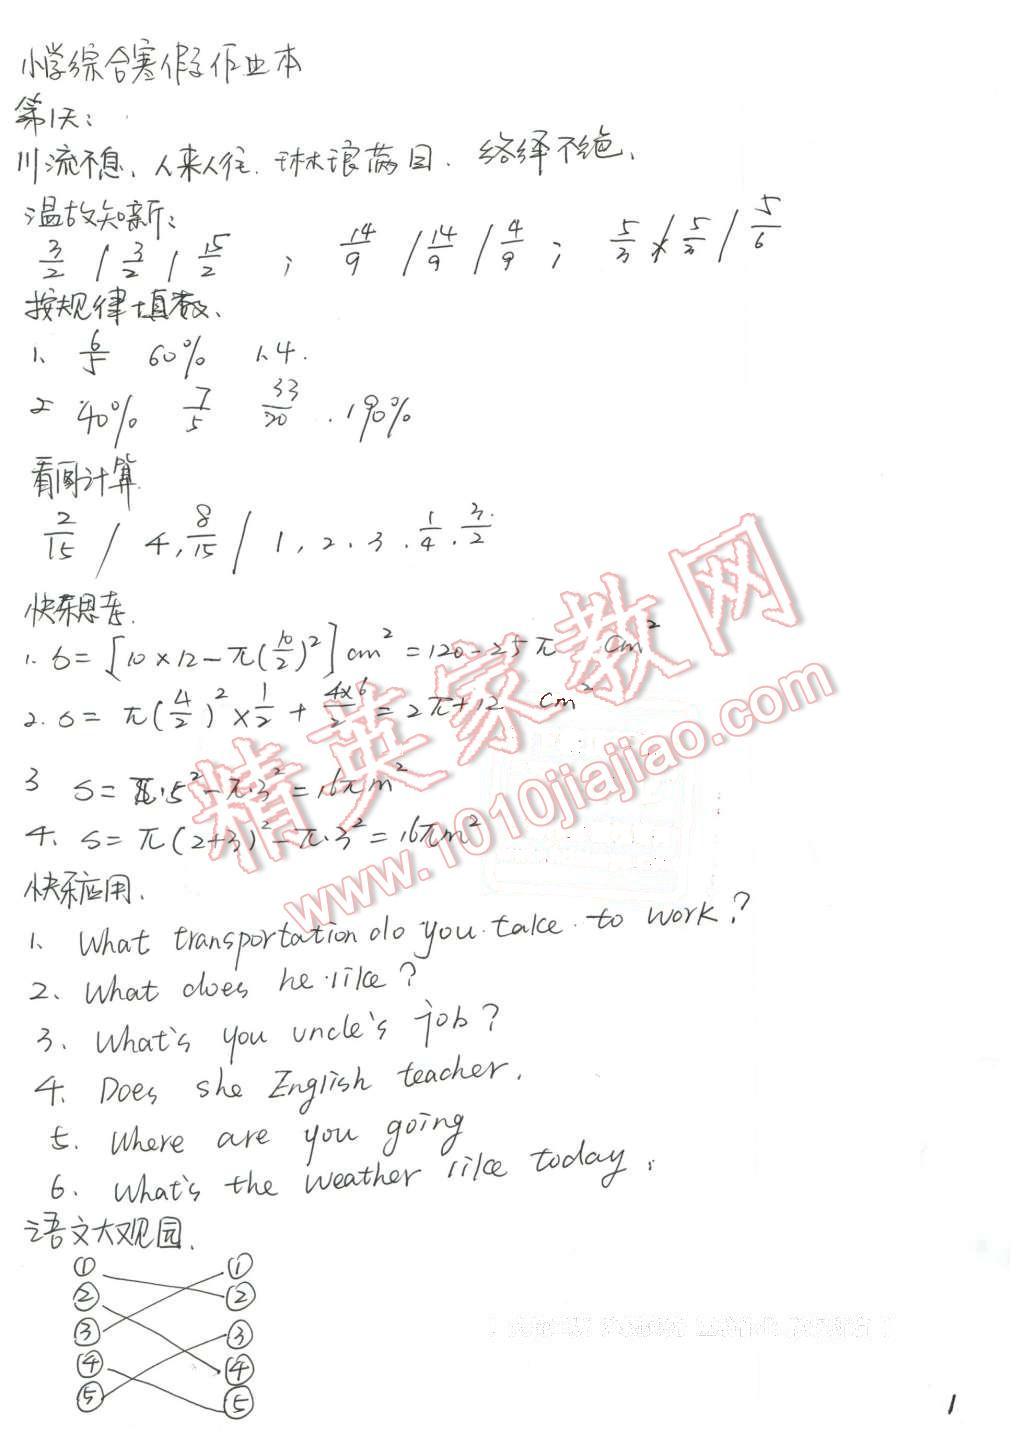 小学综合寒假作业本
第1天：
川流不息、人来人往、琳琅满目、络绎不绝、
温故知新：
3/2 / 3/2 / 15/2 ； 14/9 / 14/9 / 4/9 ； 5/3 / 5/3 / 5/6
按规律填数、
1、 6/5 60% 1.4.
2 40% 7/5 33/20 . 190%
看图计算
2/15 / 4, 8/15 / 1, 2、3、1/4、3/2
快乐思考.
1. S= [10×12-π(10/2)²]cm² =120-25π cm²
2. S= π(4/2)²×1/2 + 4×6/2 = 2π+12 cm²
3 S= π·5²-π·3²=16πm²
4. S= π(2+3)²-π·3²=16πm²
快乐应用.
1. What transportation do you take to work?
2. What does he like?
3. What's you uncle's job?
4. Does she English teacher.
5. Where are you going
6. What's the weather like today.
语文大观园.
① ①
② ②
③ ③
④ ④
⑤ ⑤
1
精英家教网
www.1010jiajiao.com